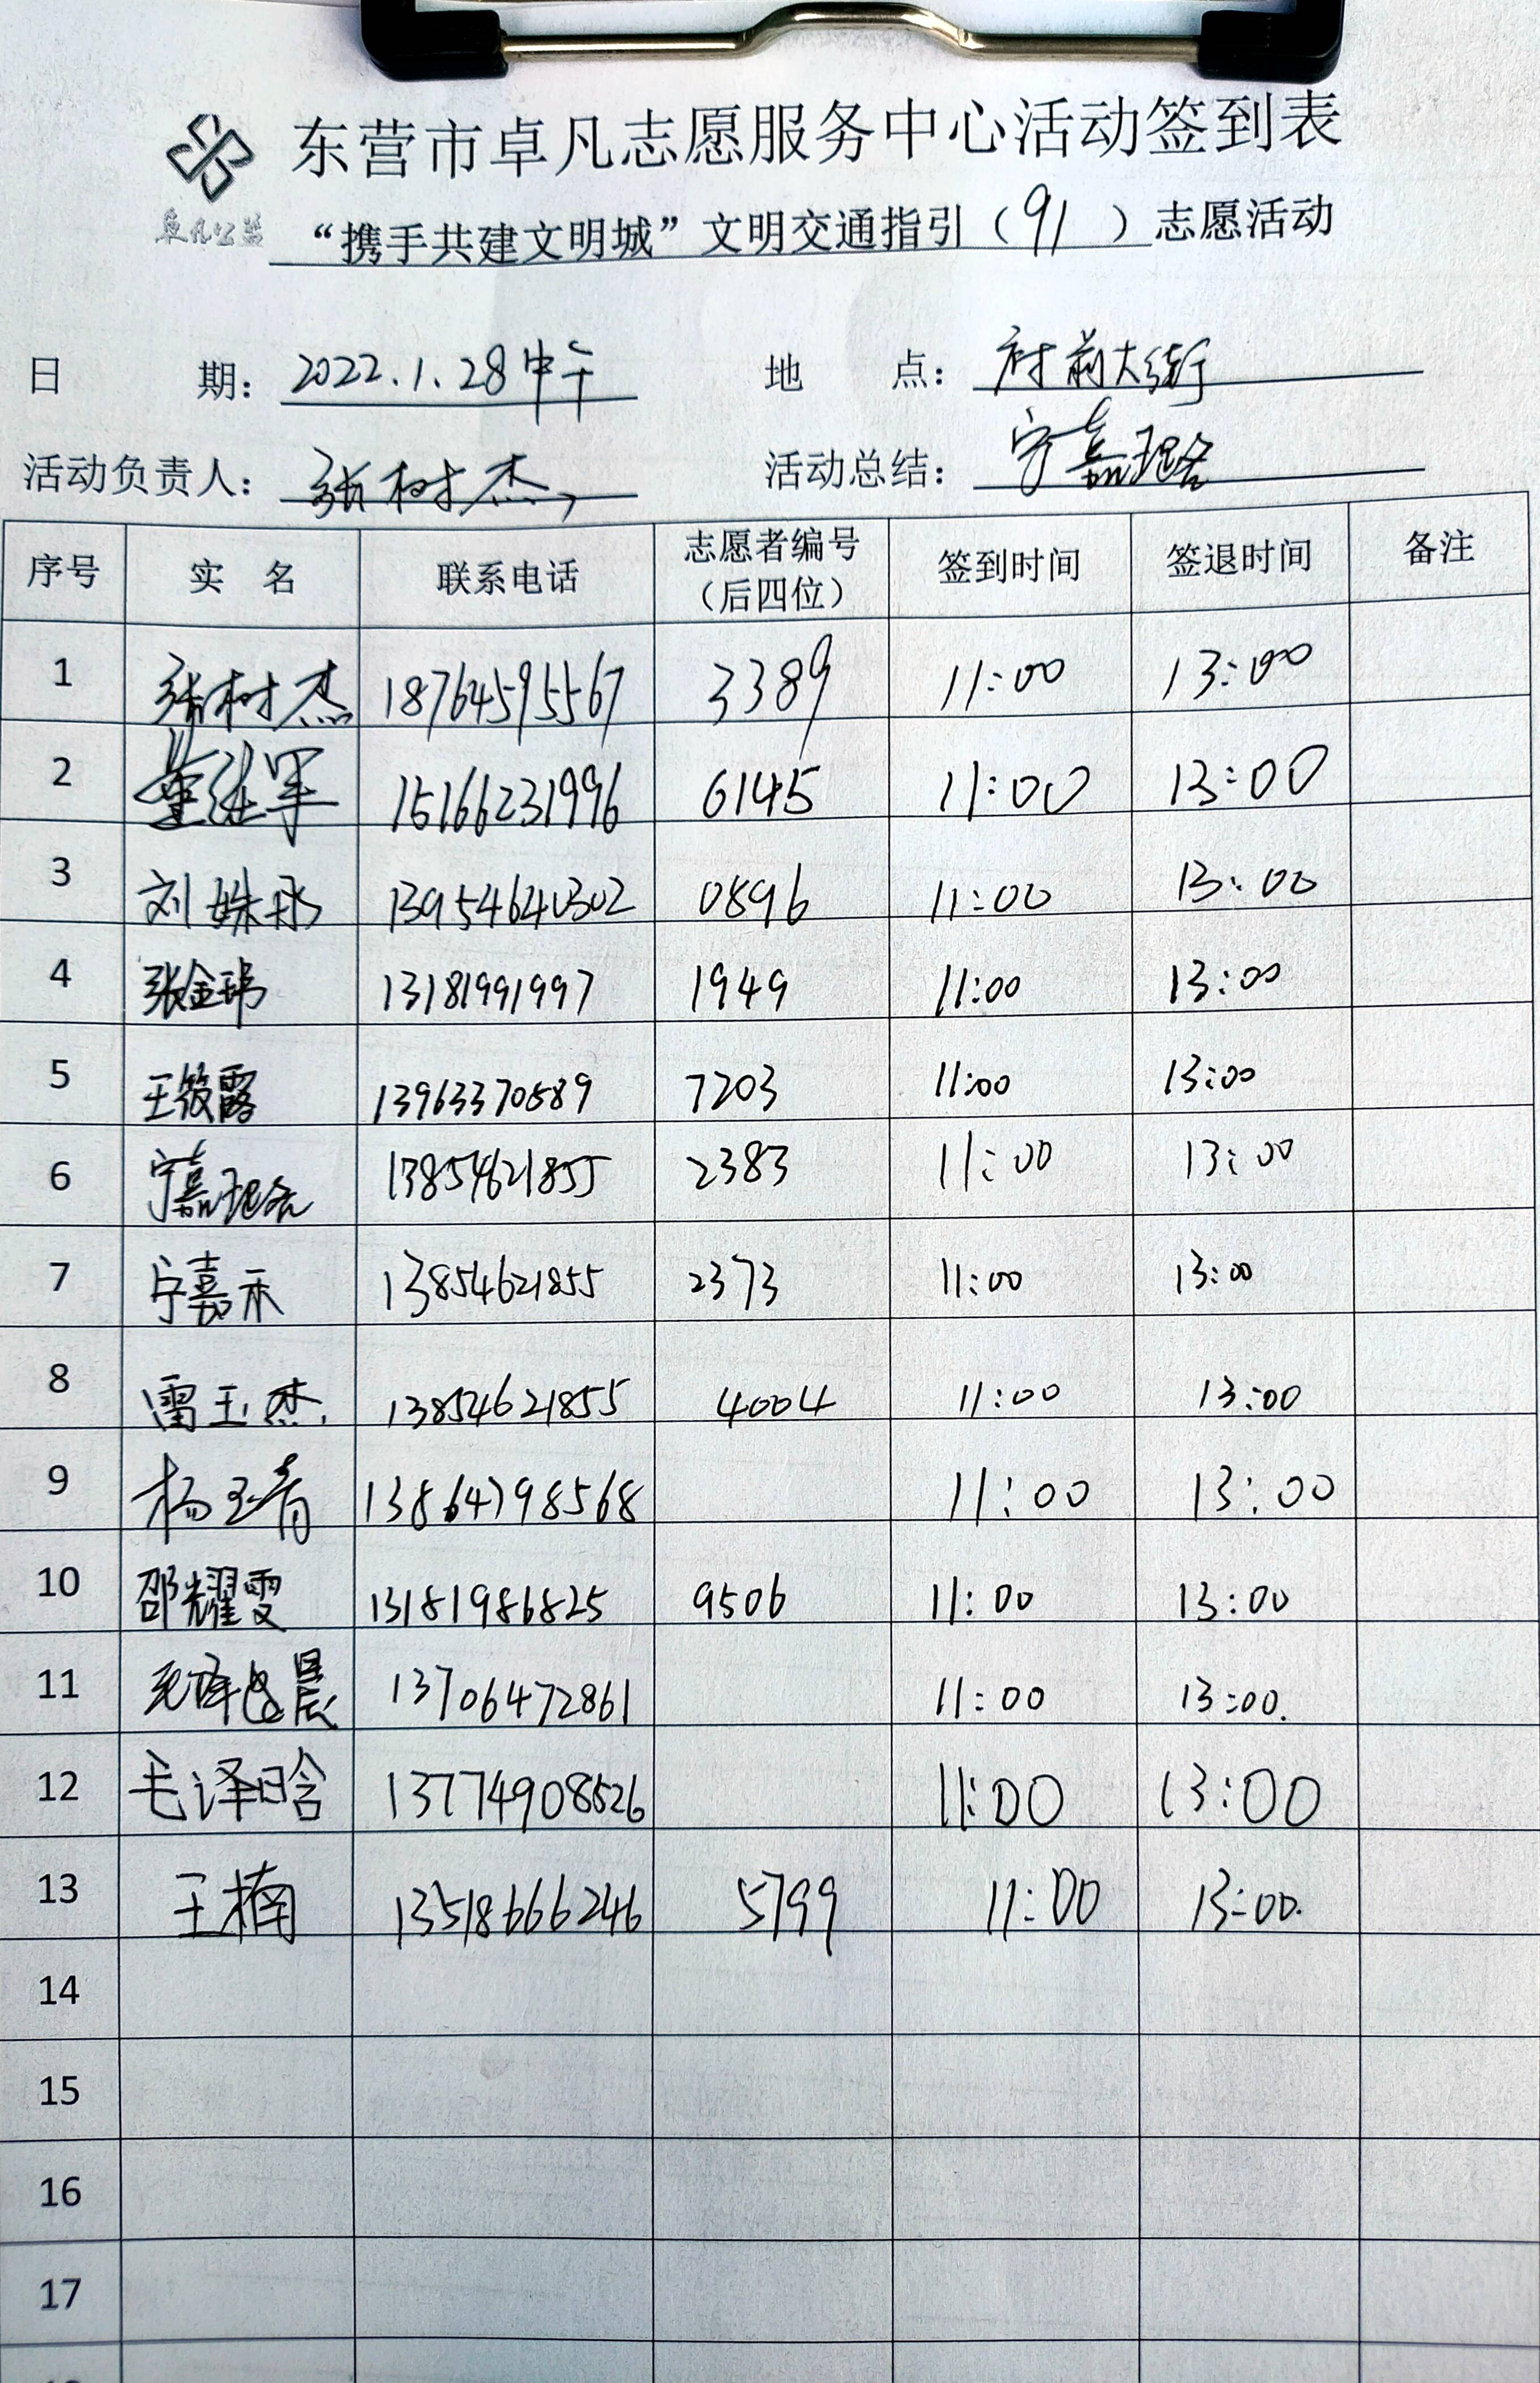 东营市卓凡志愿服务中心活动签到表
卓凡公益
“携手共建文明城”文明交通指引（91）志愿活动
日 期：2022.1.28中午 地 点：府前大街
活动负责人：张树杰 活动总结：宁嘉珞
序号 实 名 联系电话 志愿者编号（后四位） 签到时间 签退时间 备注
1 张树杰 18764595567 3389 11:00 13:00
2 董继军 15166231996 6145 11:00 13:00
3 刘姝彤 13954640302 0896 11:00 13:00
4 张金玮 13181991997 1949 11:00 13:00
5 王筱露 13963370589 7203 11:00 13:00
6 宁嘉珞 13854621855 2383 11:00 13:00
7 宁嘉禾 13854621855 2373 11:00 13:00
8 雷玉杰 13854621855 4004 11:00 13:00
9 杨玉青 13864798568 11:00 13:00
10 邵耀雯 13181986825 9506 11:00 13:00
11 晨 13706472861 11:00 13:00
12 毛泽晗 13774908526 11:00 13:00
13 王楠 13518666246 5799 11:00 13:00
14
15
16
17